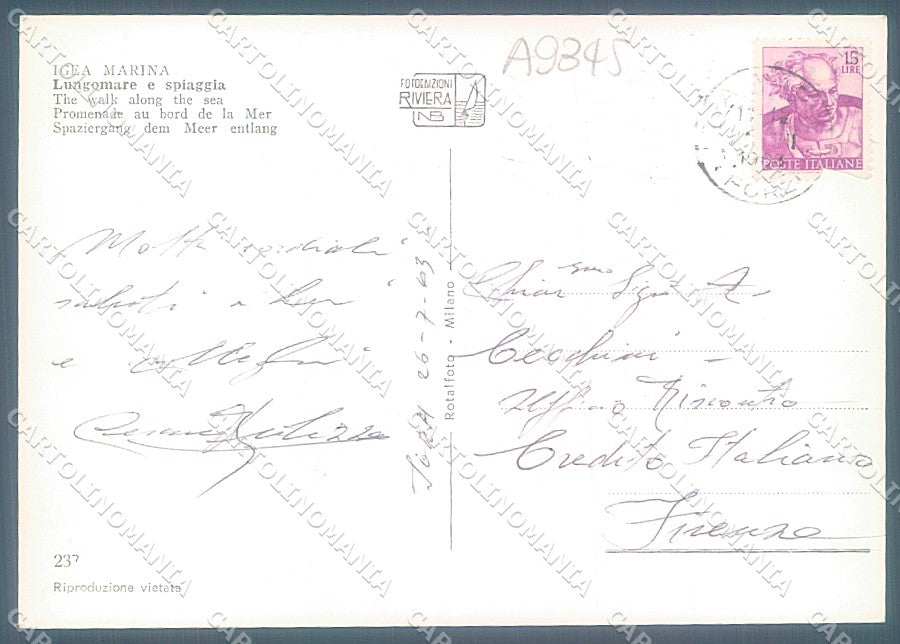 IGEA MARINA
Lungomare e spiaggia
The walk along the sea
Promenade au bord de la Mer
Spaziergang dem Meer entlang
FOTOEDIZIONI
RIVIERA
NB
A9345
15
LIRE
POSTE ITALIANE
Molti cordiali
saluti a Lei
e
Igea 26-7-63
Rotalfoto - Milano
Chiar.mo Sign. A.
Cecchini -
Ufficio Riscontro
Credito Italiano
Firenze
237
Riproduzione vietata
CARTOLINOMANIA